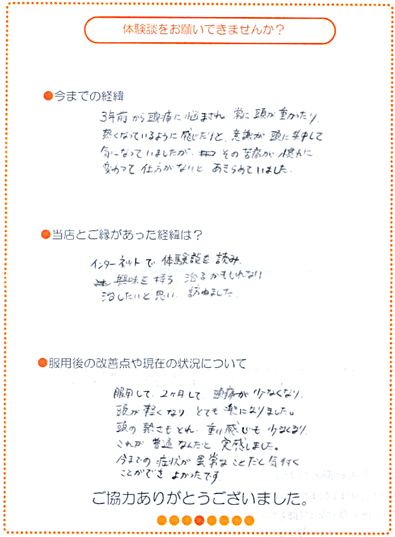 体験談をお願いできませんか？
●今までの経緯
3年前から頭痛に悩まされ 常に頭が重かたり、
熱くなっているように感じたりと、意識が頭に集中して
気になっていましたが、その苦痛が慣れに
変わって 仕方がないと あきらめていました。
●当店とご縁があった経緯は？
インターネットで 体験談を読み、
興味を持ち 治るかもしれない
治したいと思い、訪ねました。
●服用後の改善点や現在の状況について
服用して 2ヶ月して 頭痛が少なくなり、
頭が軽くなり とても楽になりました。
頭の熱さもとれ、重い感じも少なくなり、
これが普通なんだと 実感しました。
今までの症状が 異常なことだと気付く
ことができ よかったです
ご協力ありがとうございました。